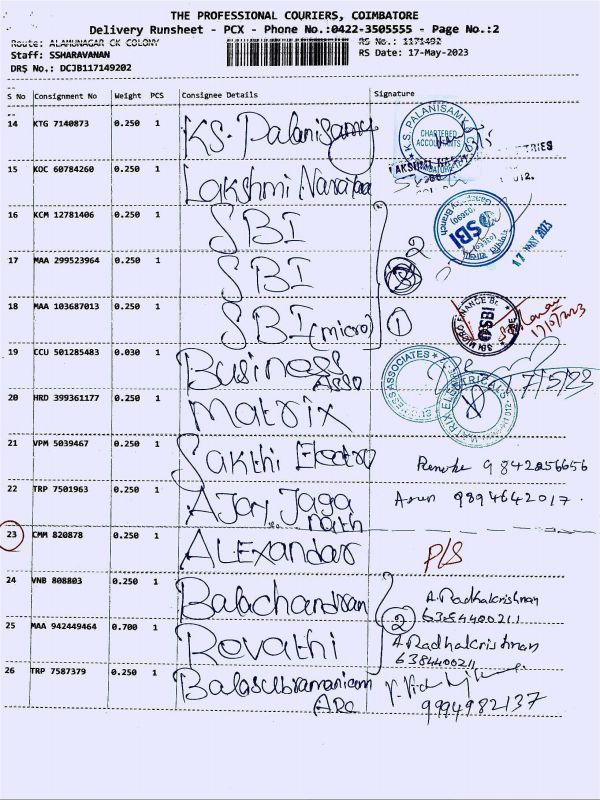 THE PROFESSIONAL COURIERS, COIMBATORE
Delivery Runsheet - PCX - Phone No.:0422-3505555 - Page No.:2
Route: ALAMUNAGAR CK COLONY RS No.: 1171492
Staff: SSHARAVANAN RS Date: 17-May-2023
DRS No.: DCJB117149202
S No Consignment No Weight PCS Consignee Details Signature
14 KTG 7140873 0.250 1 K.S. Palanisamy
CHARTERED ACCOUNTANTS
15 KOC 60784260 0.250 1 Lakshmi
16 KCM 12781406 0.250 1 SBI 2
SBI
17 MAY 2023
17 MAA 299523964 0.250 1 SBI
18 MAA 103687013 0.250 1 SBI (micro) 1
17/05/2023
19 CCU 501285483 0.030 1 Business Asso
20 HRD 399361177 0.250 1 Matrix
21 VPM 5039467 0.250 1 Sakthi Electro
22 TRP 7501963 0.250 1 AJay Jaga nath Arun 9894642017.
23 CMM 820878 0.250 1 ALEXandar P/S
24 VNB 808803 0.250 1 Balachandran A.Radhakrishnan
2
25 MAA 942449464 0.700 1 Revathi A.Radhakrishnan
6384400211
26 TRP 7587379 0.250 1 Balasubramaniam
9994982137